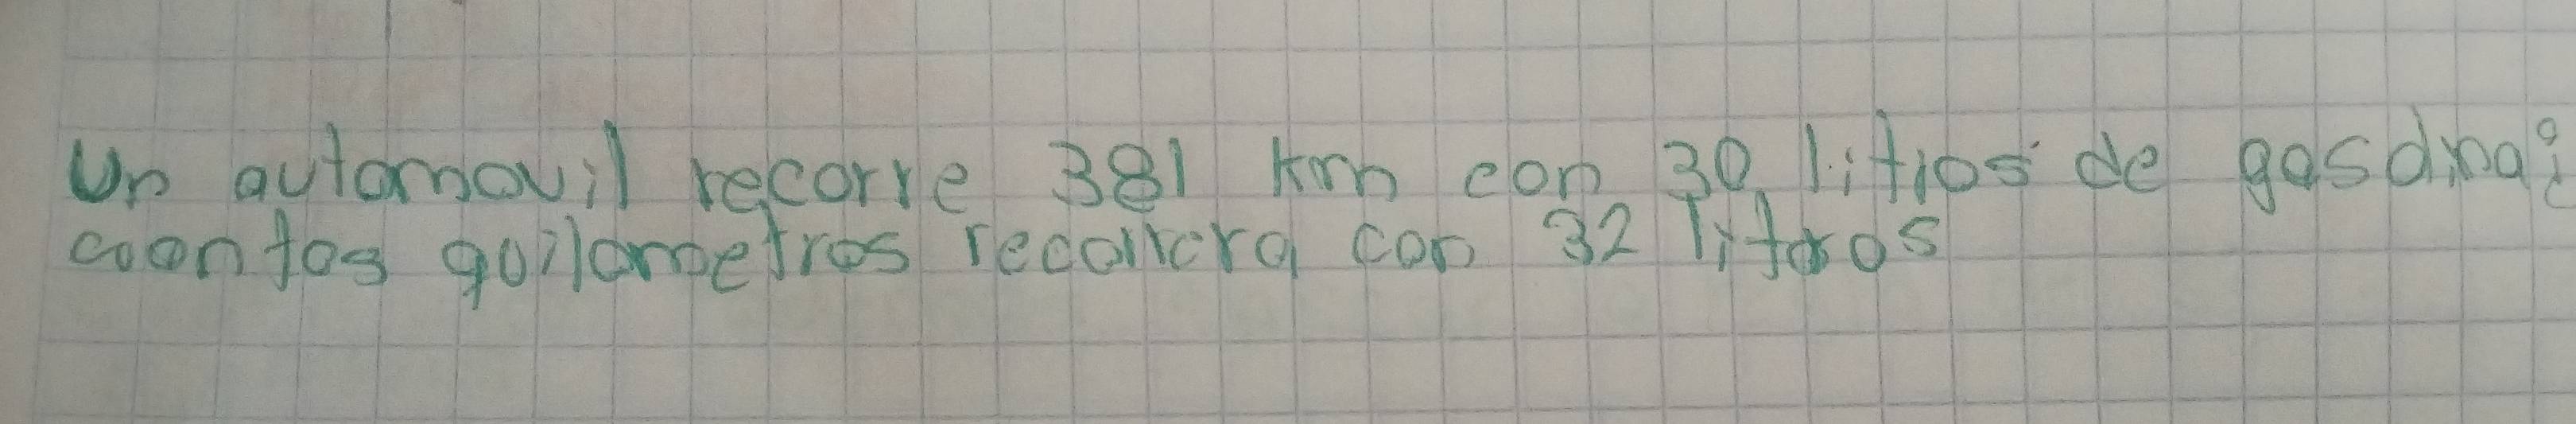 Un automovil recorre 381 km con 30 litros de gasolina¿
coontos quilometros recorrera con 32 litros